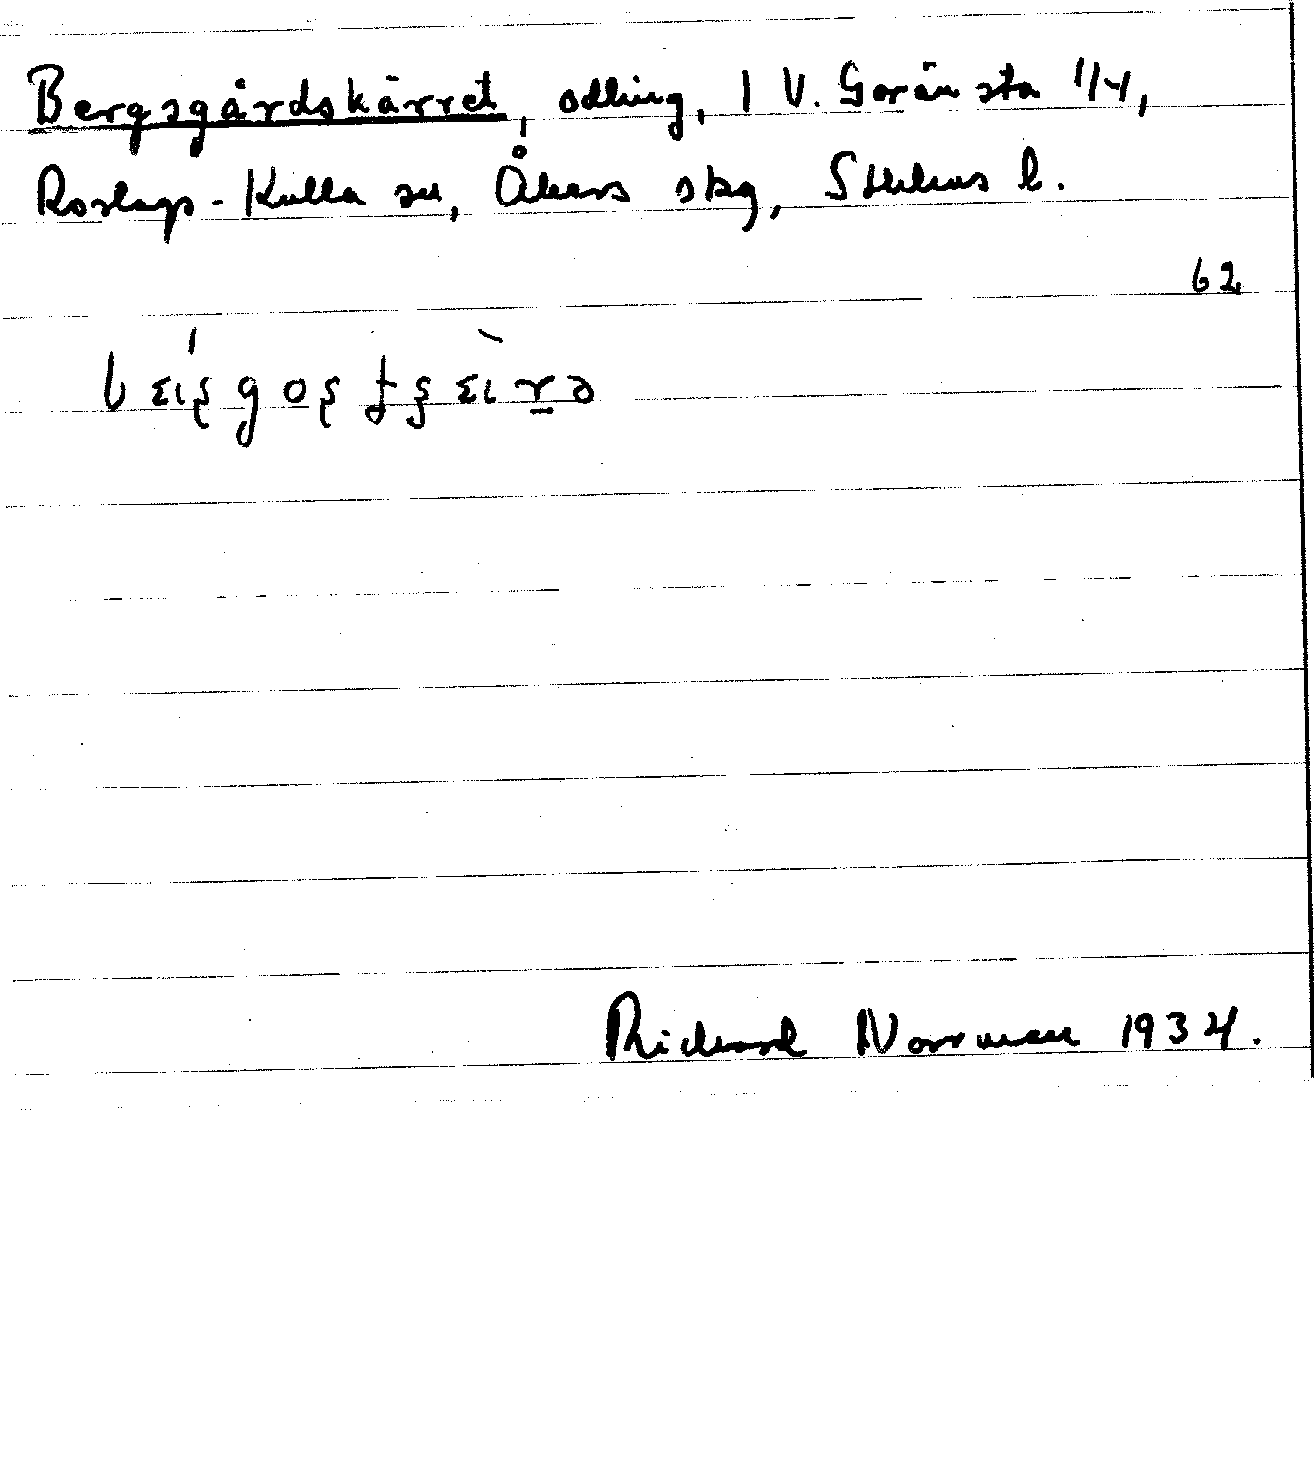 Bergsgårdskärret, odling, 1 V. Goränsta 1/4,
Roslags-Kulla sn, Åkers skg, Sthlms l.
62
Richard Norrman 1934.